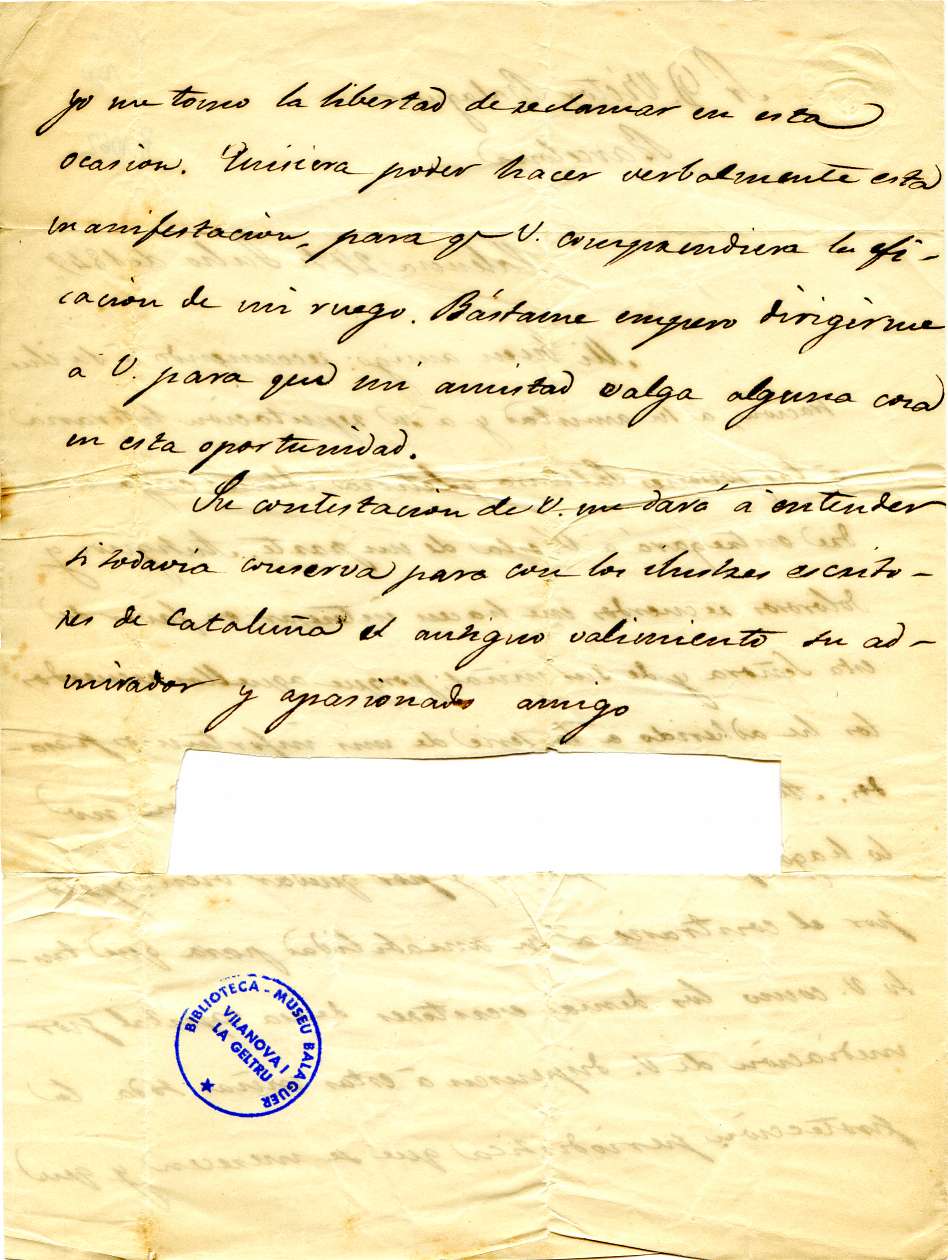 yo me tomo la libertad de reclamar en esta
ocasion. Quisiera poder hacer verbalmente esta
manifestacion, para qe V. comprendiera la efi-
cacion de mi ruego. Bástame empero dirigirme
á V. para que mi amistad valga alguna cosa
en esta oportunidad.
Su contestacion de V. me dará á entender
si todavia conserva para con los ilustres escrito-
res de Cataluña el antiguo valimiento su ad-
mirador y apasionado amigo
BIBLIOTECA - MUSEU BALAGUER
VILANOVA I
LA GELTRU